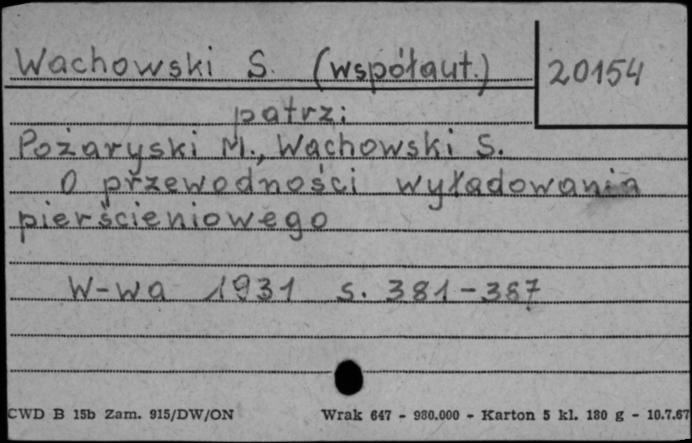 Wachowski S. (współaut.) 20154
patrz:
Pożaryski M., Wachowski S.
O przewodności wyładowania
pierścieniowego
W-wa 1931 s. 381-387
CWD B 15b Zam. 915/DW/ON Wrak 647 - 980.000 - Karton 5 kl. 180 g - 10.7.67